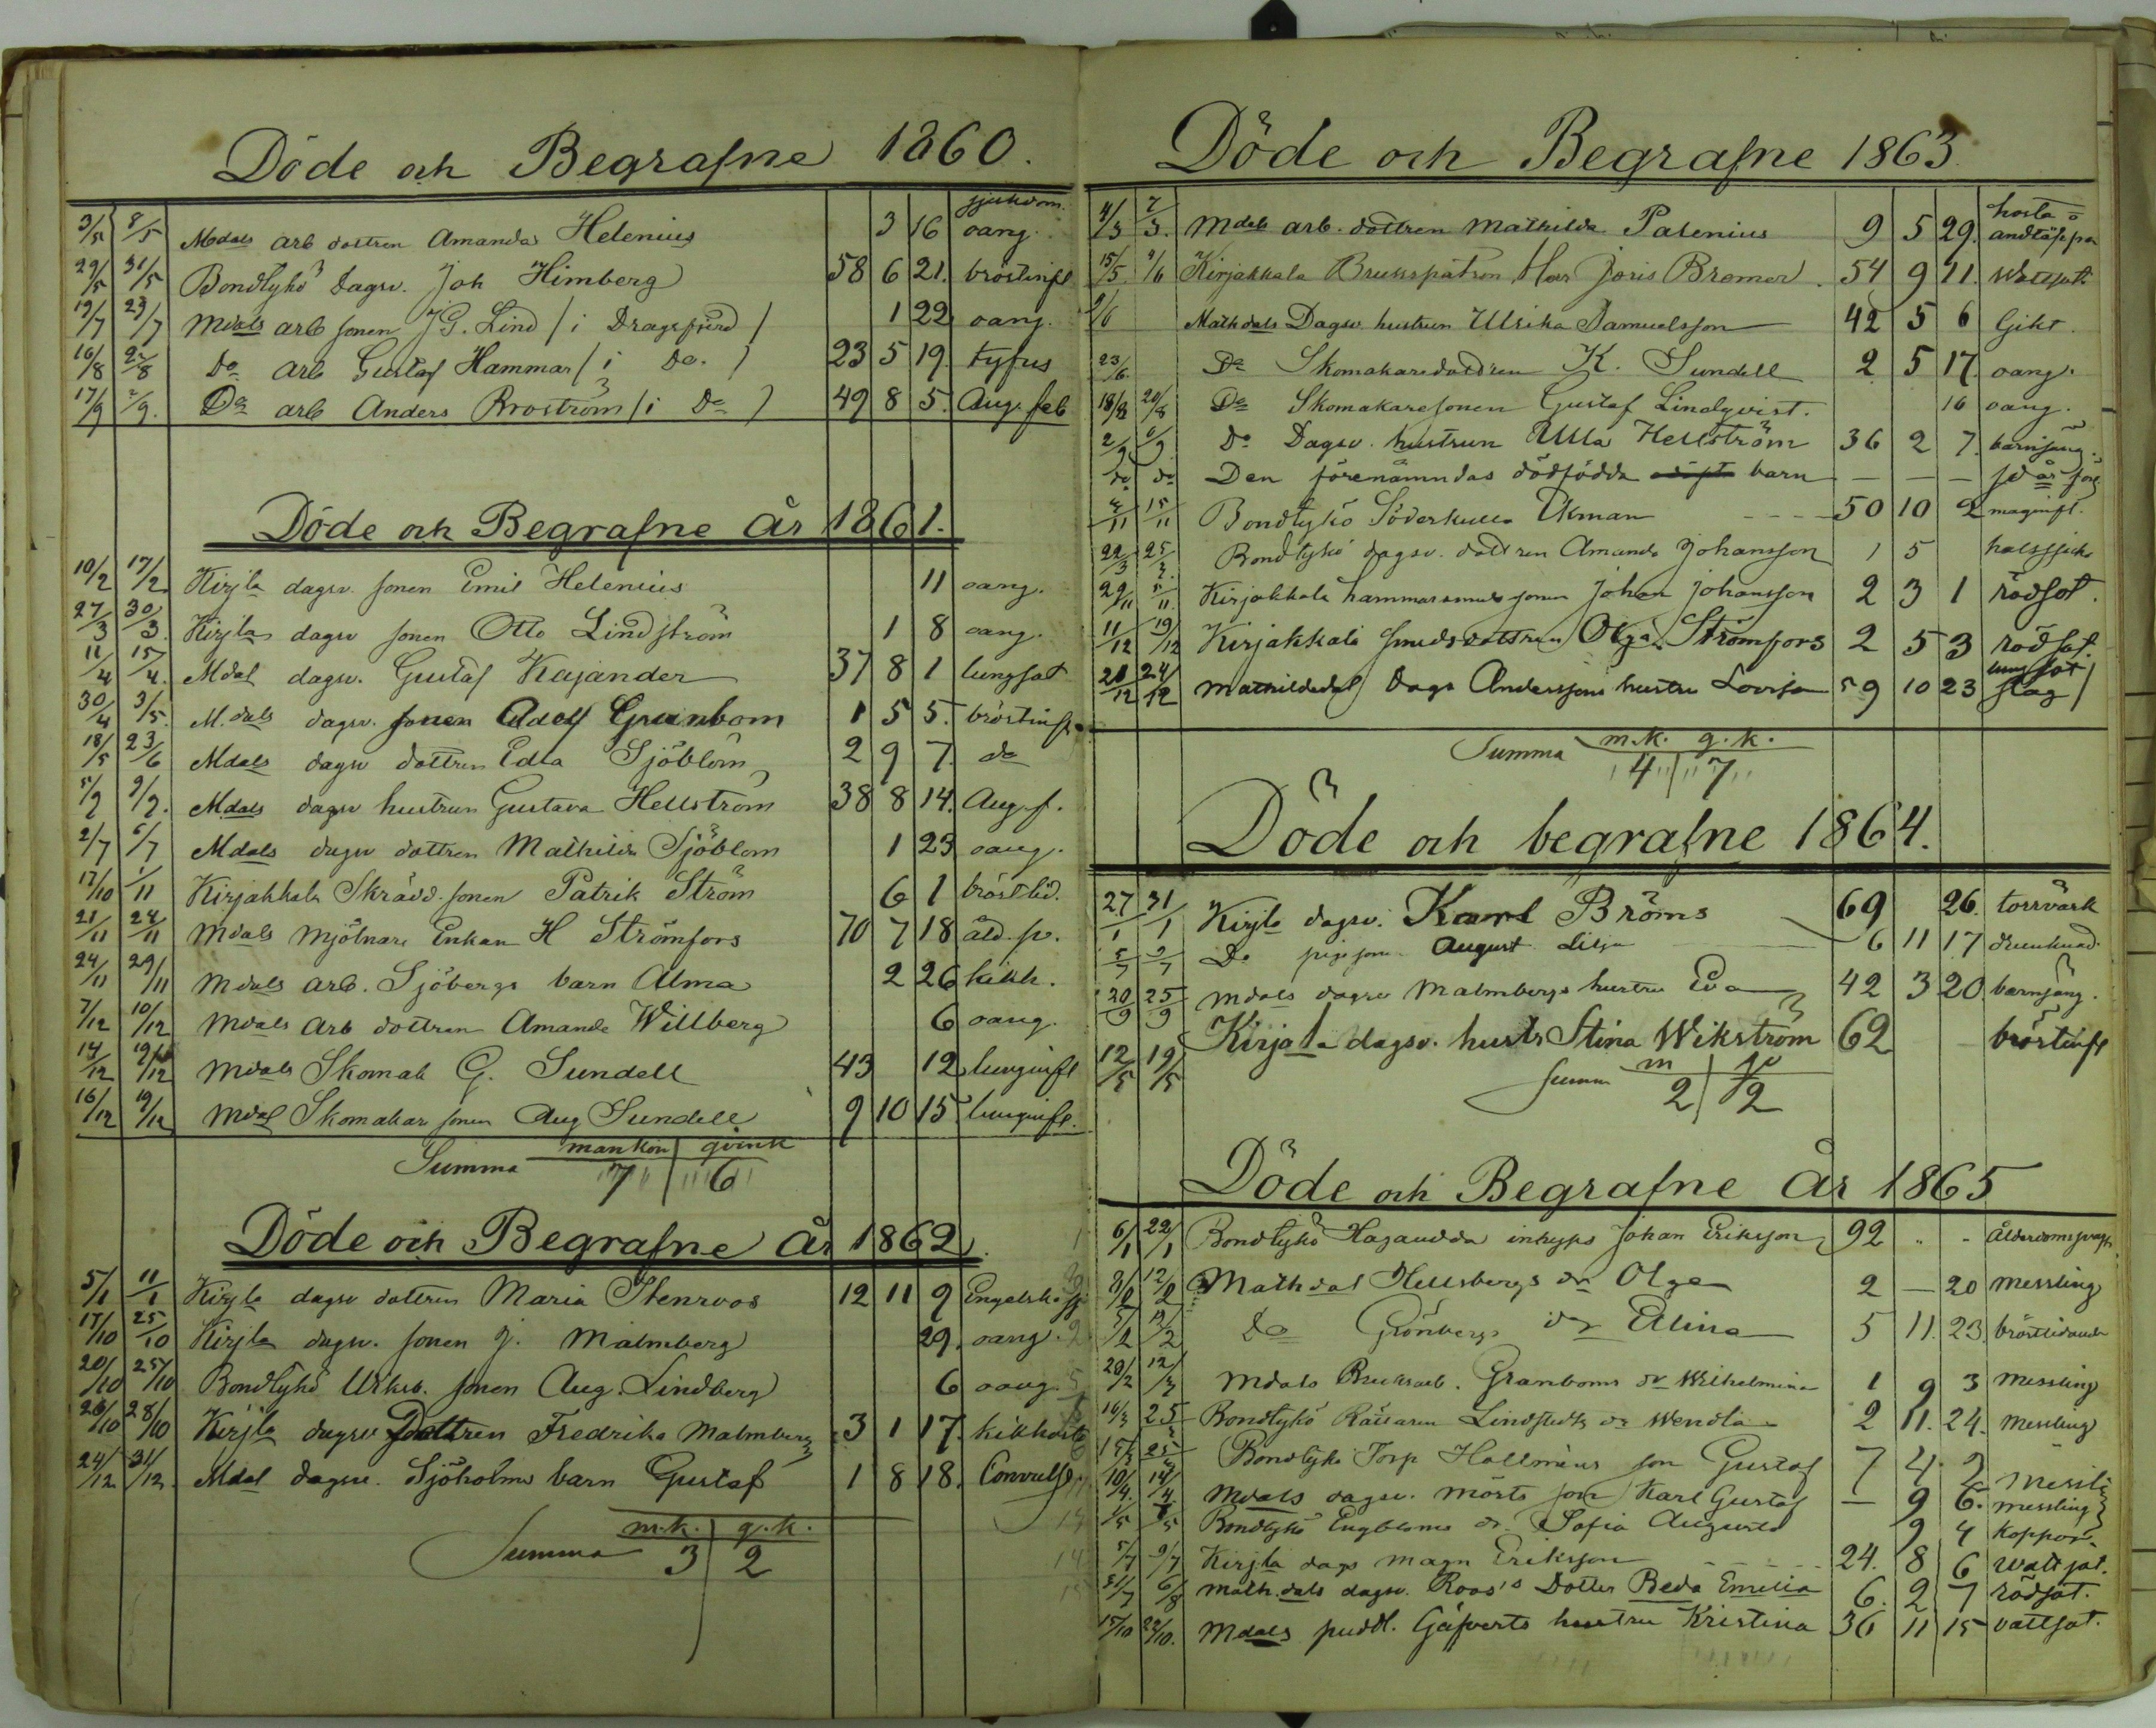 Döde och Begrafne 1860.
sjukdom.
3/5 8/5 Mdals arb dottren Amanda Helenius 3 16 oang.
29/5 31/5 Bondtykö Dagsv. Joh Himberg 58 6 21. bröstinfl
19/7 23/7 Mdals arb sonen J G. Lind / i Dragsfjerd / 1 22 oang.
16/8 22/8 Do arb Gustaf Hammar / i Do. / 23 5 19. tyfus
17/9 2/9. Do arb Anders Broström / i Do / 49 8 5. Aug. feb
Döde och Begrafne År 1861.
10/2 17/2 Kirjla dagsv. sonen Emil Helenius 11 oang.
27/3 30/3. Kirjla dagsv sonen Otto Lindström 1 8 oang.
11/4 15/4. Mdal dagsv. Gustaf Kajander 37 8 1 lungsot
30/4 3/5. M.dals dagsv. sonen Adolf Granbom 1 5 5. bröstinfl.
18/5 23/6 Mdals dagsv dottren Edla Sjöblom 2 9 7. do
5/2 9/2. Mdals dagsv hustrun Gustava Hellström 38 8 14. Aug. f.
2/7 6/7 Mdals dagsv dottren Mathilda Sjöblom 1 23 oang.
17/10 1/11 Kirjakkala Skrädd. sonen Patrik Ström 6 1 bröstlid.
21/11 24/11 Mdals Mjölnare Enkan H Strömfors 70 7 18 åld. sv.
24/11 29/11 Mdals arb. Sjöbergs barn Alma 2 26 kikh.
7/12 10/12 Mdals Arb dottren Amanda Willberg 6 oang.
14/12 19/12 Mdals Skomak G. Sundell 43 12 lunginfl
16/12 19/12 Mdal Skomakar sonen Aug Sundell 9 10 15. lunginfl.
mankön qvink
Summa 7 6
Döde och Begrafne År 1862.
5/1 11/1 Kirjla dagsv dottren Maria Stenroos 12 11 9 Engelska sj
15/10 25/10 Kirjla dagsv. sonen J. Malmberg 29. oang.
20/10 25/10 Bondtykö sonen Aug. Lindberg 6 oang.
26/10 28/10 Kirjla dagsv Dottren Fredrika Malmberg 3 1 17. kikhosta
24/12 31/12. Mdal dagsv. Sjöholms barn Gustaf 1 8 18. Convuls
m.k. q.k.
Summa 3 2
Döde och Begrafne 1863.
4/3 7/3. Mdals arb. dottren Mathilda Palenius 9 5 29. hosta o andtäppa
15/5. 9/6 Kirjakkala Brukspatron Herr Joris Bremer. 54 9 11. Wattsot
2/6 Mathdals Dagsv hustrun Ulrika Samuelsson 42 5 6 Gikt.
23/6. Do Skomakaredottren K. Sundell 2 5 17. oang.
18/8 20/8 Do Skomakaresonen Gustaf Lindqvist. 16 oang.
2/9. 6/9 Do Dagsv. hustrun Ulla Hellström 36 2 7. barnsäng.
do do Den förenämndas dödfödda döpt barn — — —
4/11 15/11 Bondtykö Söderkulla Ekman 50 10 2 maginfl.
22/3 25/3. Bondtykö dagsv. dottren Amanda Johansson 1 5 halssjuka
29/11 5/11. Kirjakkala hammarsmeds sonen Johan Johansson 2 3 1 rödsot.
11/12 19/12 Kirjakkala smedsdottren Olga Strömfors 2 5 3 rödsot.
20/12 24/12 Mathildedal Dags Anderssons hustru Lovisa 59 10 23 lungsot slag /
m.k. q.k.
Summa 4 7
Döde och begrafne 1864.
27/1 31/1 Kirjla dagsv. Karl Bröms 69 26. torrvärk
5/7 9/7 Do pigsson August Lilja 6 11 17 drunknad.
20/9 25/9 Mdals dagsv Malmbergs hustru Eva 42 3 20 barnsäng.
12/5 19/5 Kirjala dagsv. hustr Stina Wikström 62 bröstinfl
m q
Summa 2 2
Döde och Begrafne År 1865
6/1 22/1 Bondtykö Haganudda inhyses Johan Eriksson 92 - - Ålderdomssvagh.
8/2 12/2 Mathdal Hellsbergs dr Olga 2 — 20 messling
5/2 12/2 Do Grönbergs dr Elina 5 11. 23. bröstlidande
20/2 12/3 Mdals Bruksarb. Granboms dr Wilhelmina 1 9 3 messling
16/3 25 Bondtykö Rättaren Lindstedts dr Wendla 2 11. 24. messling
15/3 25/3 Bondtykö Torp Hallmäns son Gustaf 7 4. 2 messli
10/4. 14/4. Mdals dagsv. Mörts son Karl Gustaf — 9 6. messling
1/5 7/5 Bondtykö Engbloms dr. Sofia Augusta 9 4 koppor.
5/7 9/7 Kirjla dags Magn Eriksson 24. 8 6 wattsot.
31/7 6/8 Math.dals dagsv. Roos's Dotter Beda Emilia 6. 2 7 rödsot.
15/10 22/10. Mdals puddl. Gäfverts hustru Kristina 36 11 15 vattsot.